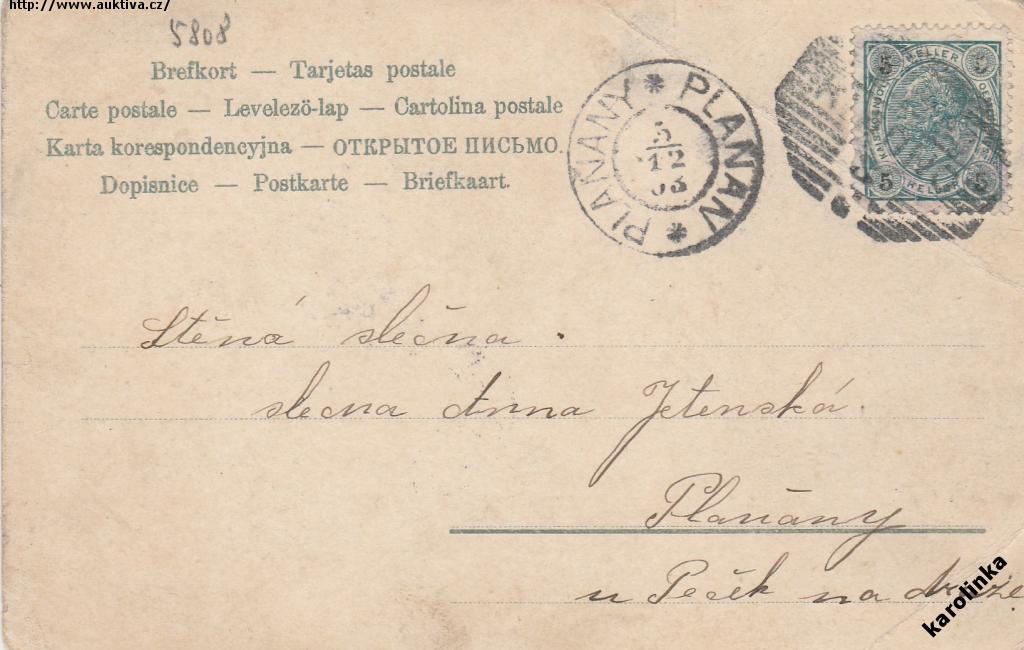 http://www.auktiva.cz/
5808
Brefkort — Tarjetas postale
Carte postale — Levelezö-lap — Cartolina postale
Karta korespondencyjna — ОТКРЫТОЕ ПИСЬМО.
Dopisnice — Postkarte — Briefkaart.
PLANAN * PLANANY *
5
12
03
5 HELLER 5
5 HELLER 5
Stěná slečna.
slecna Anna Jetenská.
Plaňany
u Peček na dráze
karolinka